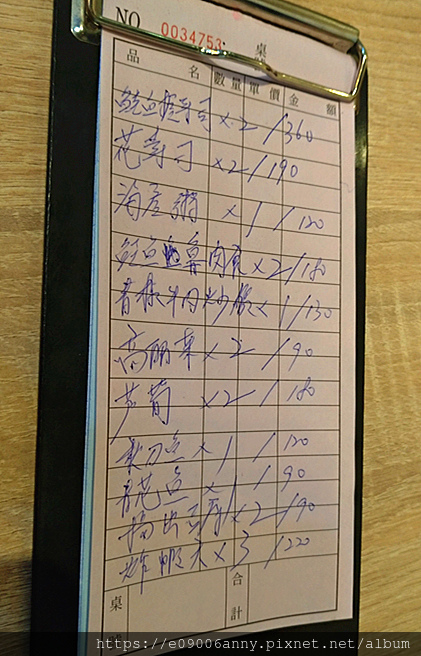 NO. 0034753 桌
品名 數量 單價 金額
鮭魚握壽司 x2 / 360
花壽司 x2 / 190
海產粥 x1 / 120
鮭魚鼻肉煮 x2 / 180
青椒牛肉炒飯 x1 / 130
高麗菜 x2 / 90
芦筍 x2 / 180
秋刀魚 x1 / 120
青花魚 x1 / 90
揚出豆腐 x2 / 90
炸蝦天 x3 / 220
桌 合計
https://e09006anny.pixnet.net/album